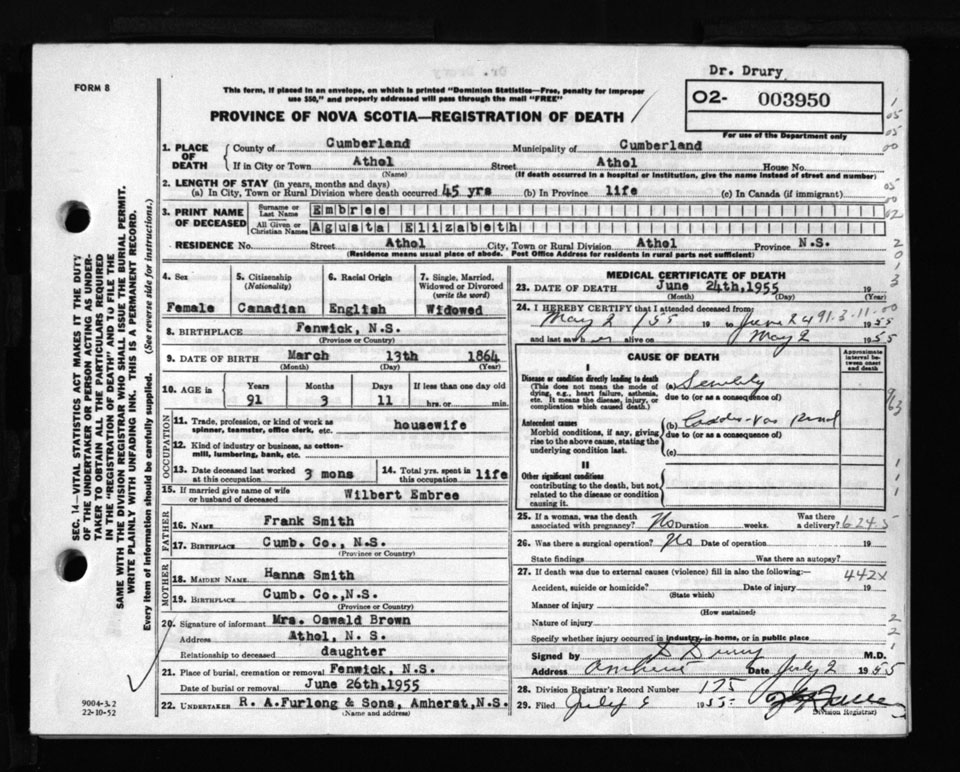 Dr. Drury
FORM 8
This form, if placed in an envelope, on which is printed "Dominion Statistics—Free, penalty for improper
use $50," and properly addressed will pass through the mail "FREE"
O2- 003950
For use of the Department only
PROVINCE OF NOVA SCOTIA—REGISTRATION OF DEATH
SEC. 14—VITAL STATISTICS ACT MAKES IT THE DUTY
OF THE UNDERTAKER OR PERSON ACTING AS UNDER-
TAKER TO OBTAIN ALL THE PARTICULARS REQUIRED
IN THE "REGISTRATION OF DEATH" AND TO FILE THE
SAME WITH THE DIVISION REGISTRAR WHO SHALL ISSUE THE BURIAL PERMIT.
WRITE PLAINLY WITH UNFADING INK. THIS IS A PERMANENT RECORD.
Every item of information should be carefully supplied. (See reverse side for instructions.)
1. PLACE OF DEATH County of Cumberland Municipality of Cumberland
If in City or Town Athol Street Athol House No.
(Name) (If death occurred in a hospital or institution, give the name instead of street and number)
2. LENGTH OF STAY (in years, months and days)
(a) In City, Town or Rural Division where death occurred 45 yrs (b) In Province life (c) In Canada (if immigrant)
3. PRINT NAME OF DECEASED Surname or Last Name Embree
All Given or Christian Names Agusta Elizabeth
RESIDENCE No. Street Athol City, Town or Rural Division Athol Province N.S.
(Residence means usual place of abode. Post Office Address for residents in rural parts not sufficient)
4. Sex 5. Citizenship (Nationality) 6. Racial Origin 7. Single, Married, Widowed or Divorced (write the word)
Female Canadian English Widowed
8. BIRTHPLACE Fenwick, N.S.
(Province or Country)
9. DATE OF BIRTH March 13th 1864
(Month) (Day) (Year)
10. AGE is Years Months Days If less than one day old
91 3 11 hrs. or min.
OCCUPATION
11. Trade, profession, or kind of work as spinner, teamster, office clerk, etc. housewife
12. Kind of industry or business, as cotton-mill, lumbering, bank, etc.
13. Date deceased last worked at this occupation 3 mons 14. Total yrs. spent in this occupation life
15. If married give name of wife or husband of deceased Wilbert Embree
FATHER
16. NAME Frank Smith
17. BIRTHPLACE Cumb. Co., N.S.
(Province or Country)
MOTHER
18. MAIDEN NAME Hanna Smith
19. BIRTHPLACE Cumb. Co.,N.S.
(Province or Country)
20. Signature of informant Mrs. Oswald Brown
Address Athol, N. S.
Relationship to deceased daughter
21. Place of burial, cremation or removal Fenwick, N.S.
Date of burial or removal June 26th,1955
22. UNDERTAKER R. A.Furlong & Sons, Amherst,N.S.
(Name and address)
9004-3.2
22-10-52
MEDICAL CERTIFICATE OF DEATH
23. DATE OF DEATH June 24th,1955 19
(Month) (Day) (Year)
24. I HEREBY CERTIFY that I attended deceased from:
May 2 /55 19 to June 24 1955
and last saw her alive on May 2 1955
CAUSE OF DEATH
Approximate interval between onset and death
I
Disease or condition directly leading to death
(This does not mean the mode of dying, e.g., heart failure, asthenia, etc. It means the disease, injury, or complication which caused death.)
(a) Senility
due to (or as a consequence of)
Antecedent causes
Morbid conditions, if any, giving rise to the above cause, stating the underlying condition last.
(b) Cardio-Vas Renal
due to (or as a consequence of)
(c)
II
Other significant conditions
contributing to the death, but not related to the disease or condition causing it.
25. If a woman, was the death associated with pregnancy? No Duration weeks. Was there a delivery?
6245
26. Was there a surgical operation? No Date of operation 19
State findings Was there an autopsy?
27. If death was due to external causes (violence) fill in also the following:—
442x
Accident, suicide or homicide? Date of injury 19
(State which)
Manner of injury
(How sustained)
Nature of injury
Specify whether injury occurred in industry, in home, or in public place
Signed by Drury M.D.
Address Amherst Date July 2 1955
28. Division Registrar's Record Number 175
29. Filed July 5 1955
Division Registrar